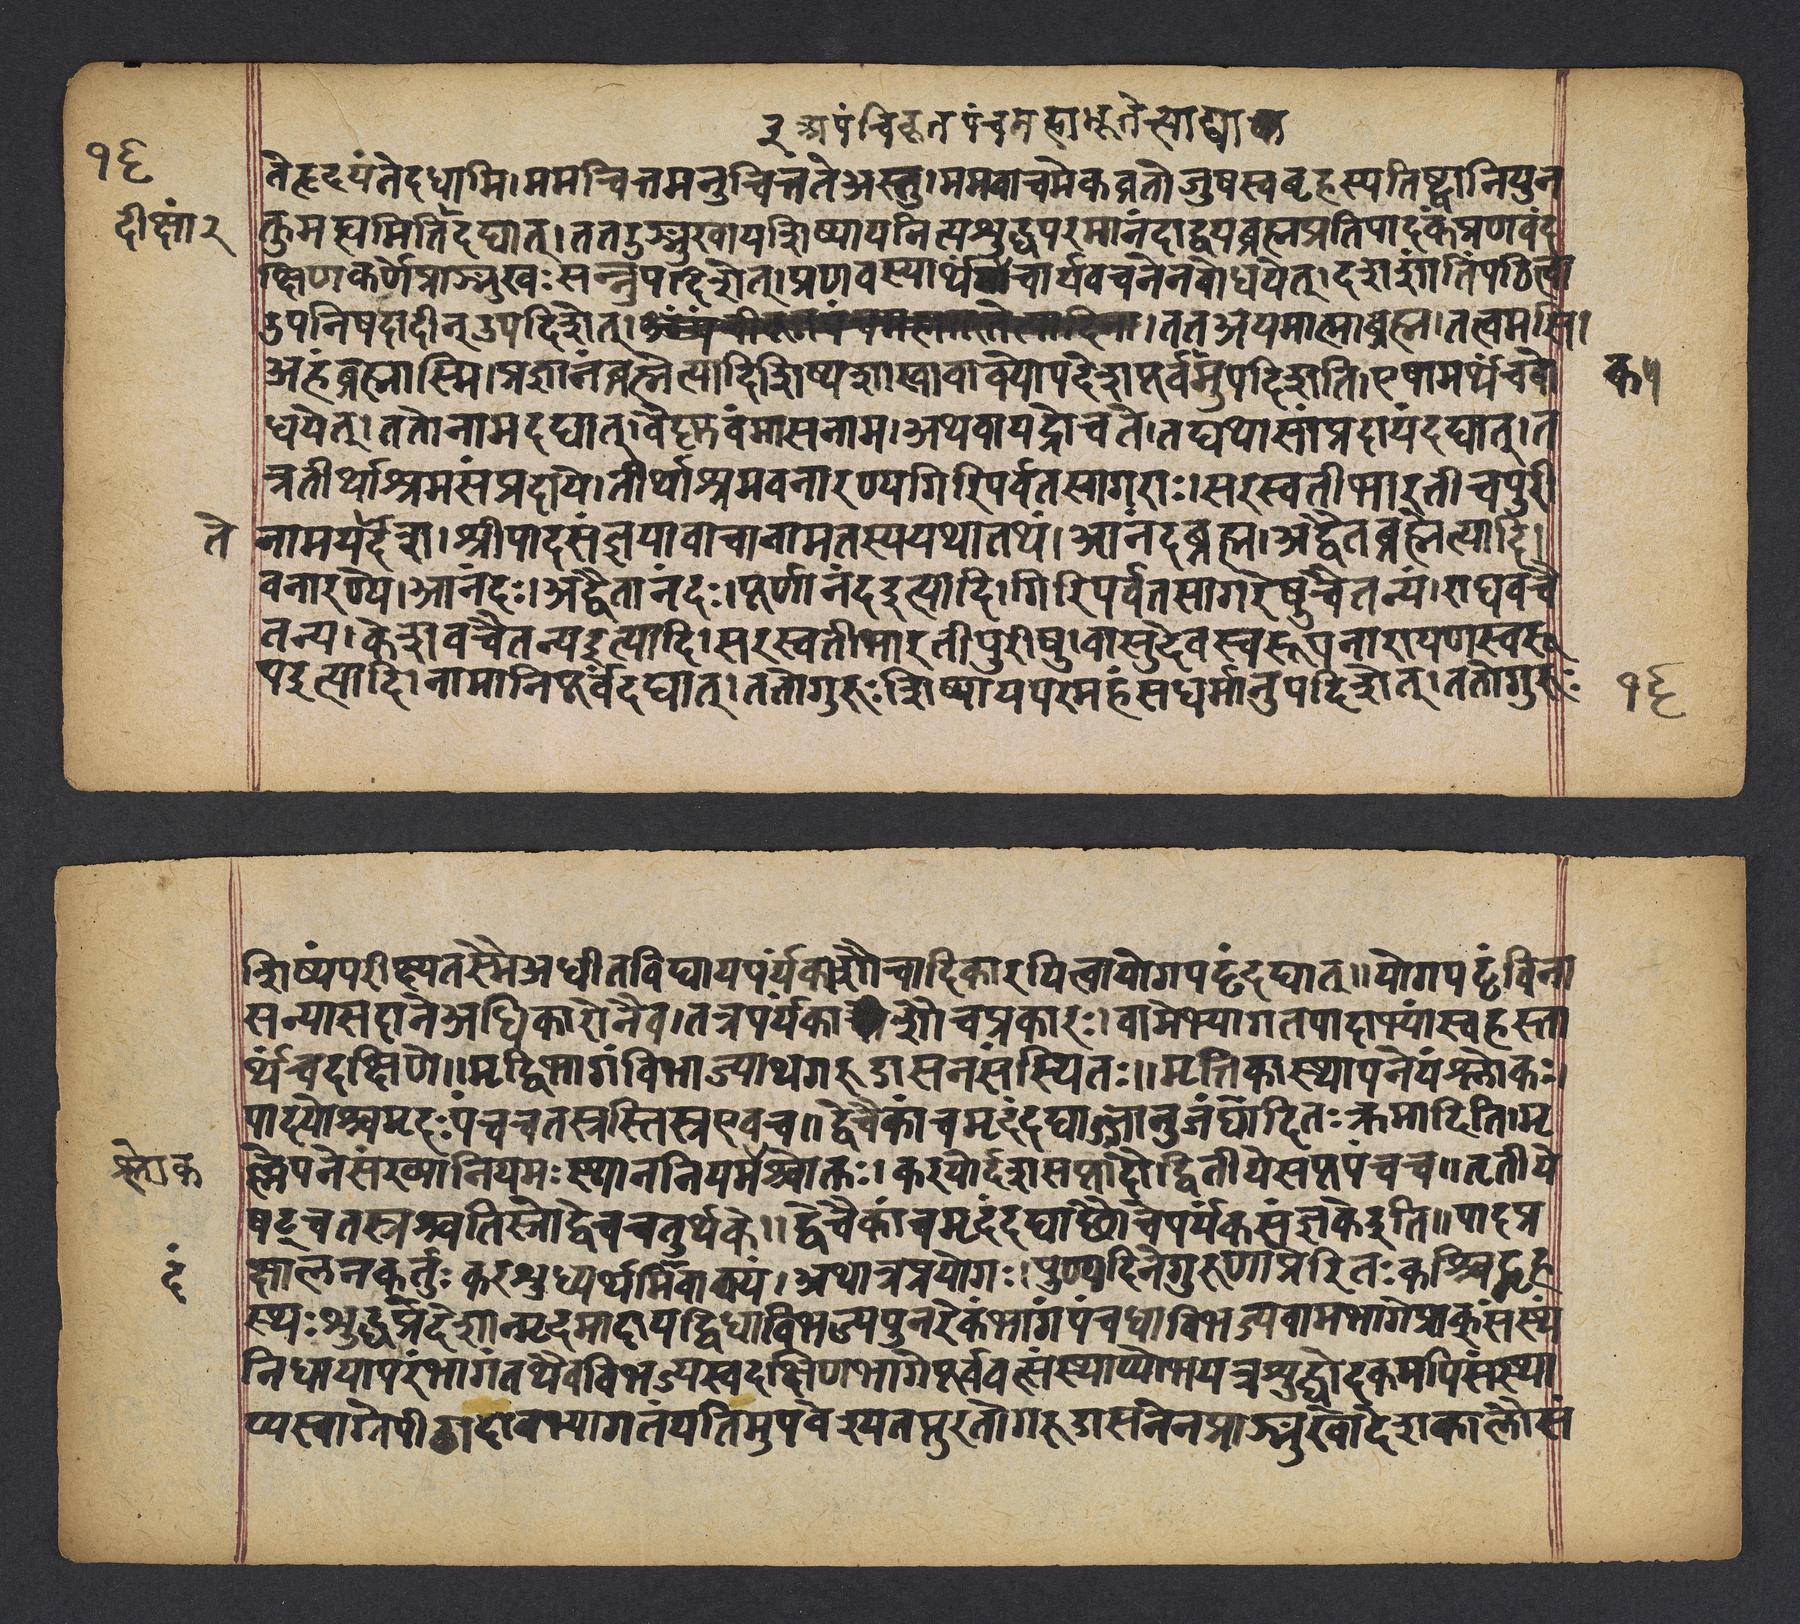 ३ अपंचिकृतपंचमहाभूतेत्याद्या
१६
तेहृदयंतेदधामि। ममचित्तमनुचित्तंतेअस्तु। ममवाचमेकव्रतोजुषस्वबृहस्पतिष्ट्वानियुन
दीक्षां २
क्तुमह्यमितिदद्यात्। ततउङ्मुखायशिष्यायनित्यशुद्धपरमानंदाद्वयब्रह्मप्रतिपादकंप्रणवंद
क्षिणकर्णेप्राङ्मुखःसन्नुपदिशेत्। प्रणवस्यार्थंचार्यवचनेनबोधयेत्। दशशांतिंपठित्वा
उपनिषदादीन्उपदिशेत्। ततअयमात्माब्रह्म। तत्वमसि।
अहंब्रह्मास्मि। प्रज्ञानंब्रह्मेत्यादिशिष्यशाखावाक्योपदेशपूर्वमुपदिशति। एषामर्थंचबो
क ५
धयेत्। ततोनामदद्यात्। वैष्णवंमासनाम। अथवायद्रोचते। तद्यथासांप्रदायंदद्यात्। त
त्रतीर्थाश्रमसंप्रदाये। तीर्थाश्रमवनारण्यगिरिपर्वतसागराः। सरस्वतीभारतीचपुरी
ते
नामयर्देश। श्रीपादसंज्ञयावाचानामतस्ययथातथं। आनंदब्रह्म। अद्वैतब्रह्मेत्यादि।
वनारण्ये। आनंदः। अद्वैतानंदः। पूर्णानंदइत्यादि। गिरिपर्वतसागरेषुचैतन्यं। राघवचै
तन्य। केशवचैतन्यइत्यादि। सरस्वतीभारतीपुरीषु। वासुदेवस्वरूपनारायणस्वरू
पइत्यादि। नामानिपूर्वंदद्यात्। ततोगुरुःशिष्यायपरमहंसधर्मानुपदिशेत्। ततोगुरुः
१६
शिष्यंपरीक्ष्यतस्मैअधीतविद्यायपर्यंकशौचादिकारयित्वायोगपट्टंदद्यात्॥ योगपट्टंविना
सन्यासदानेअधिकारोनैव। तत्रपर्यंकाशौचप्रकारः। वामेभ्यागतपादाभ्यांस्वहस्ता
र्थंचदक्षिणे॥ मृद्विभागंविभाज्याथगरुडासनसंस्थितः॥ मृत्तिकास्थापनेयंश्लोकः।
पादयोश्चमृदःपंचचतस्रस्तिस्रएवच॥ द्वेचैकांचमृदंदद्याज्जानुजंघादितःक्रमादिति। मृ
श्लोक
ल्लेपनेसंख्यानियमःस्थाननियमश्चोक्तः। करयोर्दशसप्तादौद्वितीयेसप्तपंचच॥ तृतीये
षट्चतस्रश्चतिस्रोद्वेचचतुर्थके॥ द्वेचैकांचमृदंदद्याछौचेपर्यंकसंज्ञकेइति॥ पादप्र
दं
क्षालनकर्तुःकरशुध्यर्थमिवाक्यं। अथात्रप्रयोगः। पुण्यदिनेगुरुणाप्रेरितःकश्चिद्गृह
स्थःशुद्धप्रदेशान्मृदमादायद्विधाविभज्यपुनरेकंभागंपंचधाविभज्यवामभागेप्राक्संस्थं
निधायापरंभागंतथैवविभज्यस्वदक्षिणभागेपूर्ववत्संस्थाप्योभयत्रशुद्धोदकमपिसंस्था
प्यस्वाग्रेपीठादावभ्यागतंयतिमुपवेश्यतत्पुरतोगरुडासनेनप्राङ्मुखोदेशकालौसं